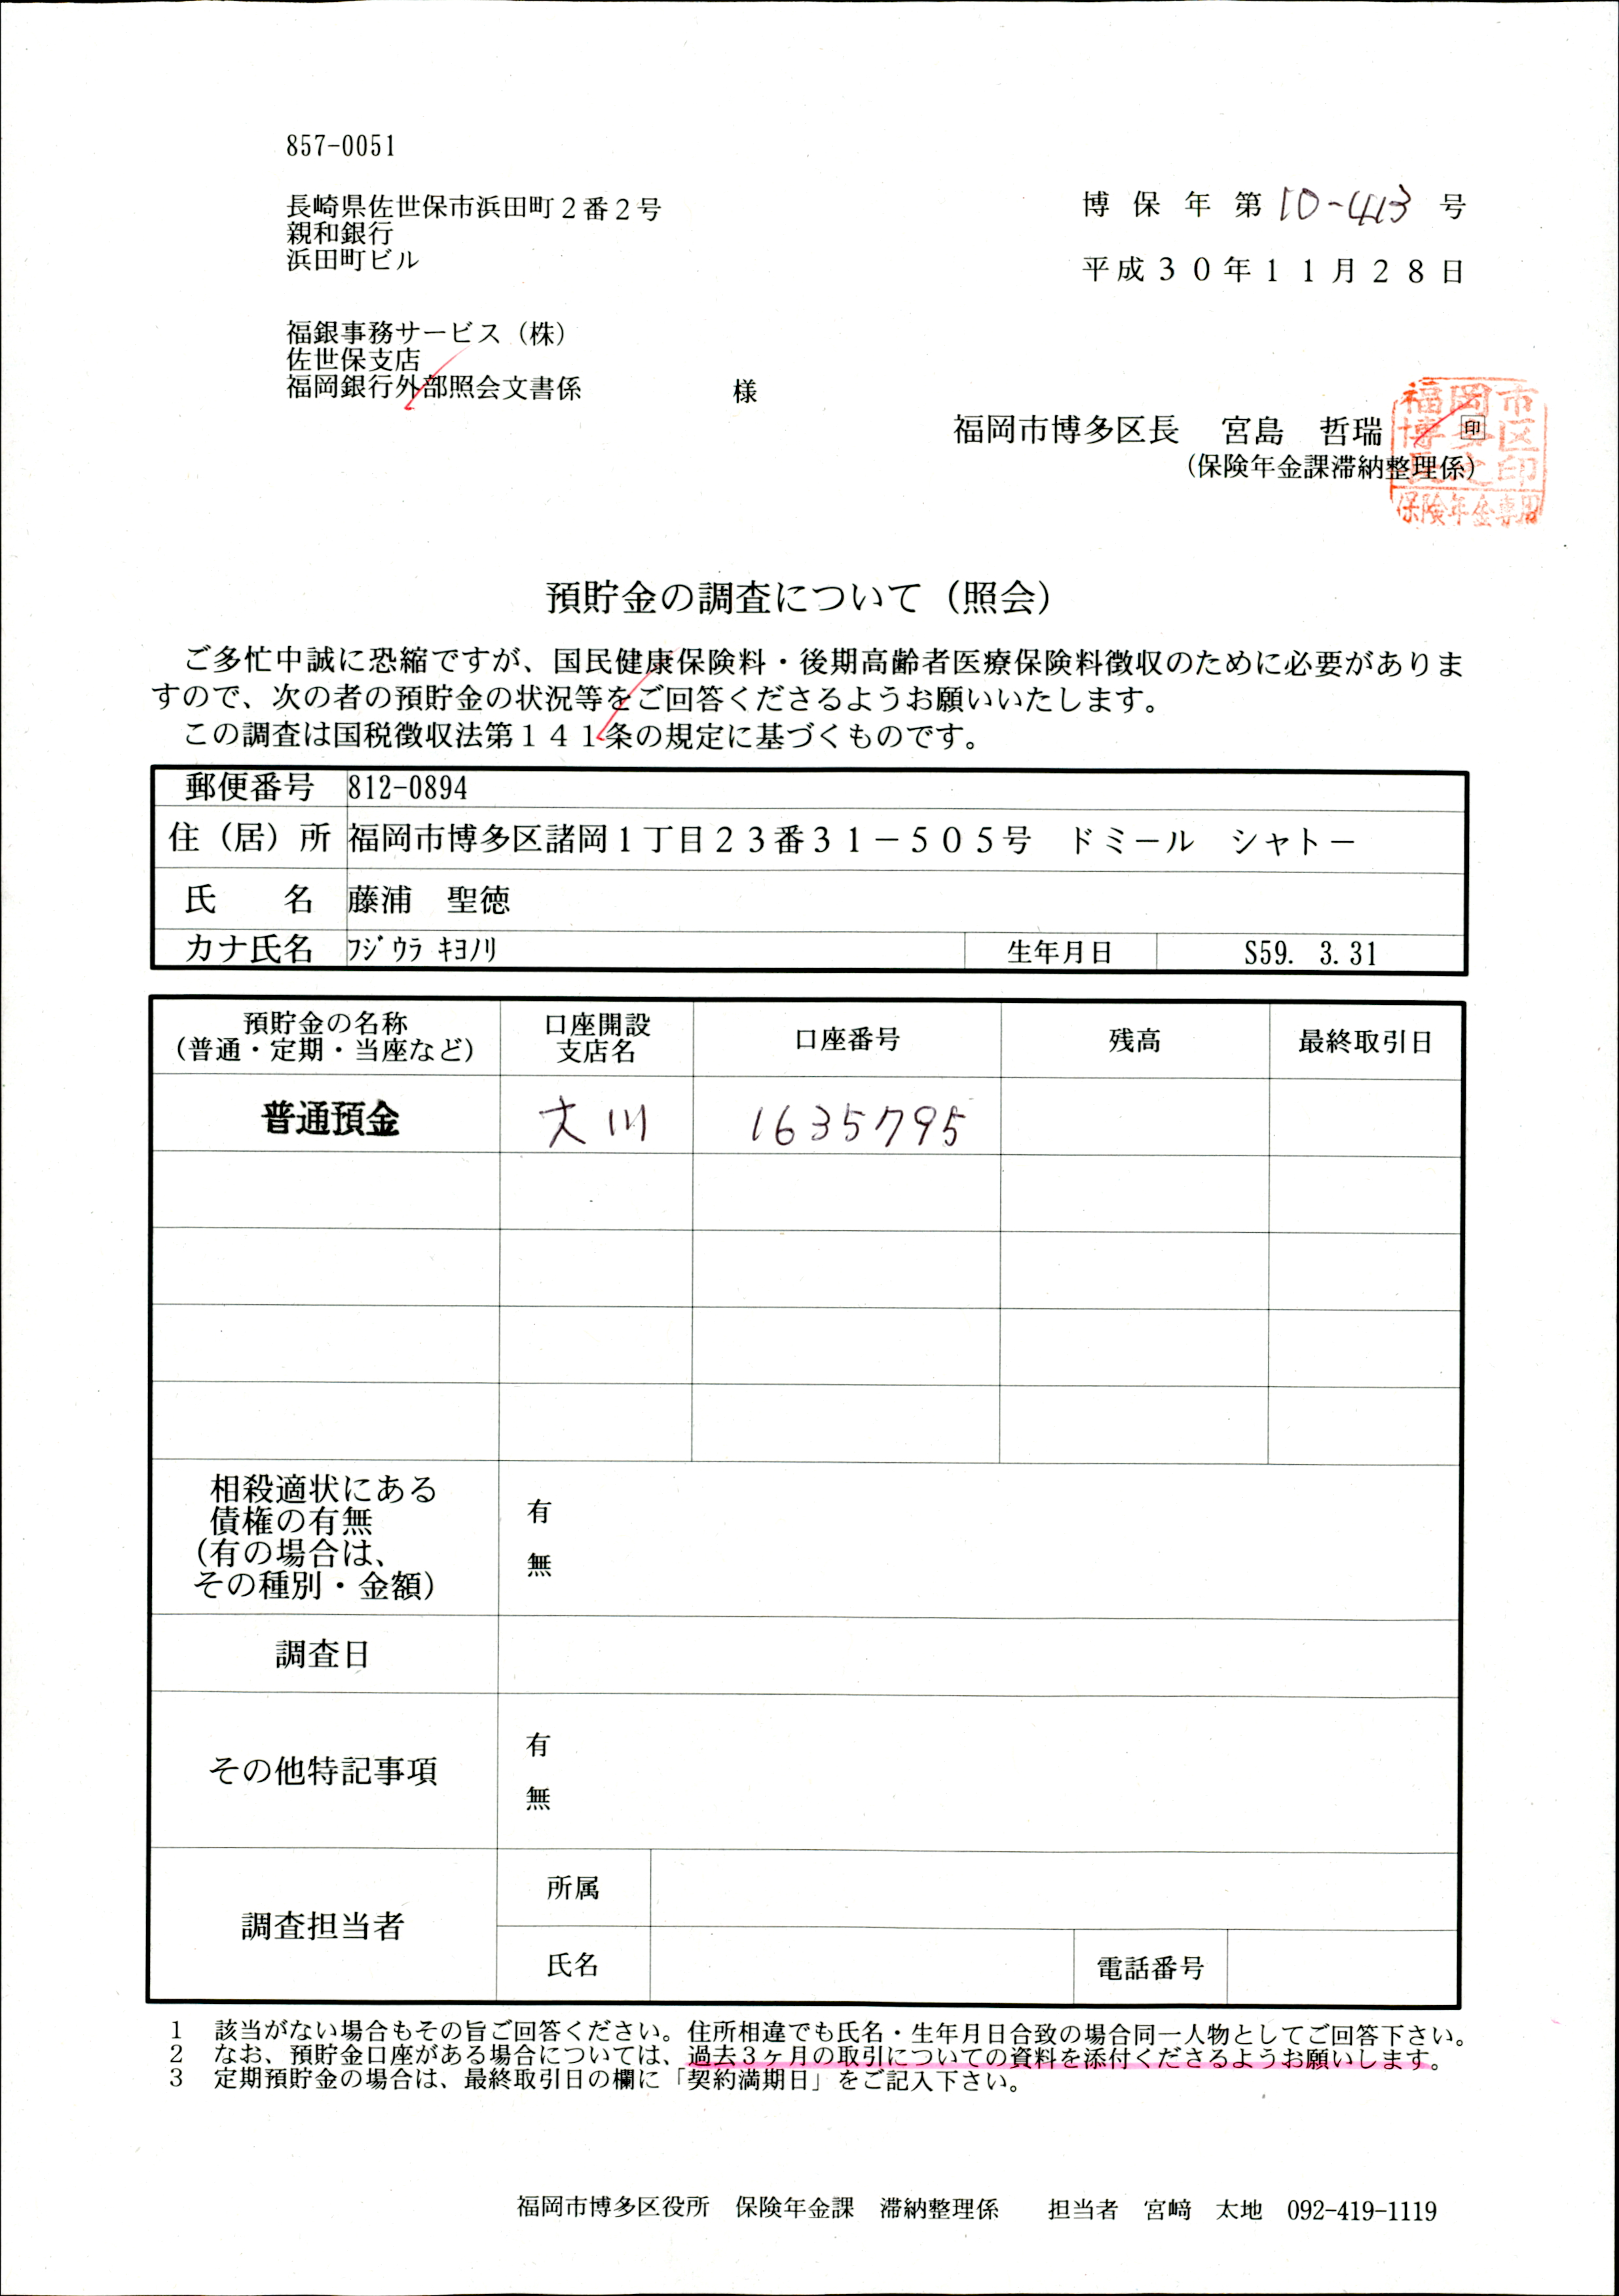 857-0051
長崎県佐世保市浜田町２番２号
親和銀行
浜田町ビル
博保年第10-413号
平成３０年１１月２８日
福銀事務サービス（株）
佐世保支店
福岡銀行外部照会文書係　様
福岡市博多区長　宮島　哲瑞　印
（保険年金課滞納整理係）
福岡市
博多区
長之印
保険年金専用
預貯金の調査について（照会）
ご多忙中誠に恐縮ですが、国民健康保険料・後期高齢者医療保険料徴収のために必要がありま
すので、次の者の預貯金の状況等をご回答くださるようお願いいたします。
この調査は国税徴収法第１４１条の規定に基づくものです。
郵便番号　812-0894
住（居）所　福岡市博多区諸岡１丁目２３番３１－５０５号　ドミール　シャトー
氏　名　藤浦　聖徳
カナ氏名　ﾌｼﾞｳﾗ ｷﾖﾉﾘ　生年月日　S59. 3.31
預貯金の名称
（普通・定期・当座など）
口座開設
支店名
口座番号　残高　最終取引日
普通預金　大川　1635795
相殺適状にある
債権の有無
（有の場合は、
その種別・金額）
有
無
調査日
その他特記事項
有
無
調査担当者
所属
氏名　電話番号
1　該当がない場合もその旨ご回答ください。住所相違でも氏名・生年月日合致の場合同一人物としてご回答下さい。
2　なお、預貯金口座がある場合については、過去３ヶ月の取引についての資料を添付くださるようお願いします。
3　定期預貯金の場合は、最終取引日の欄に「契約満期日」をご記入下さい。
福岡市博多区役所　保険年金課　滞納整理係　担当者　宮﨑　太地　092-419-1119